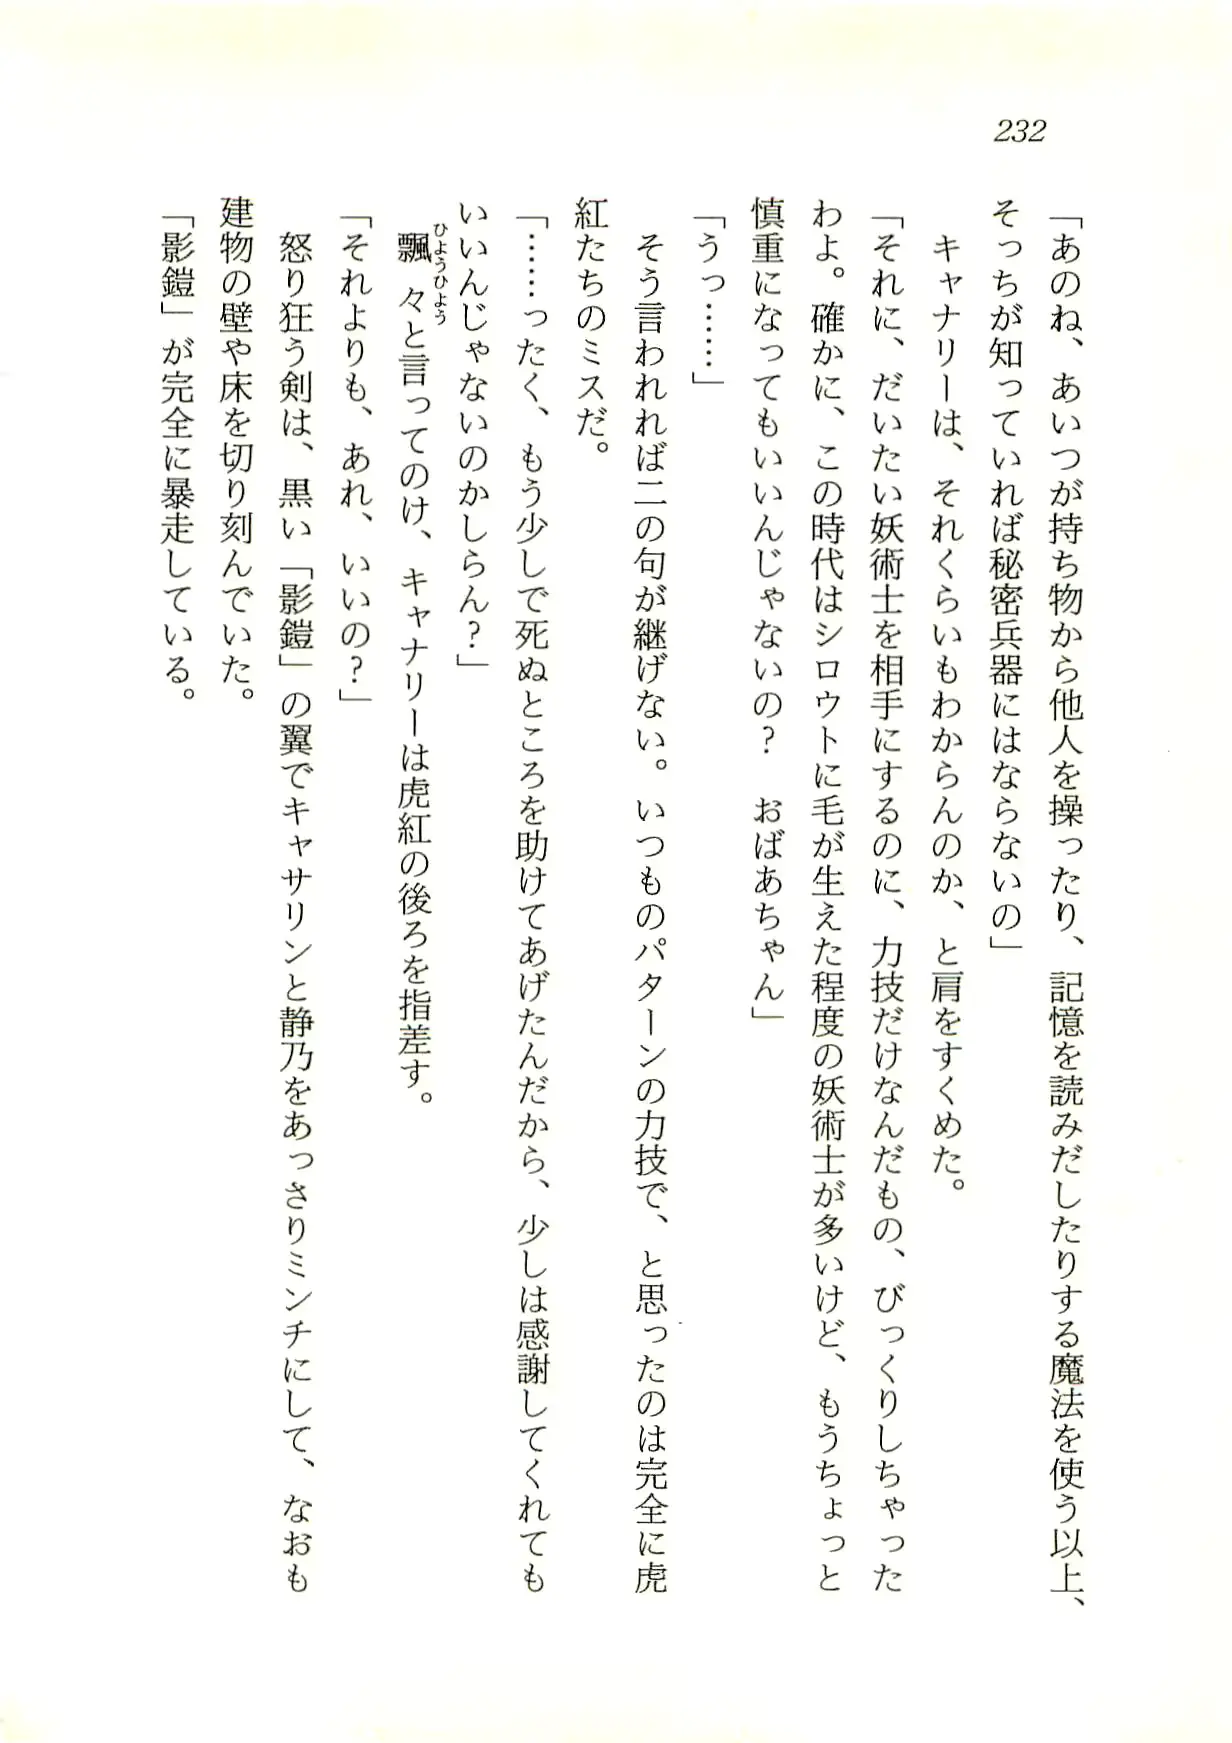 232
「あのね、あいつが持ち物から他人を操ったり、記憶を読みだしたりする魔法を使う以上、
そっちが知っていれば秘密兵器にはならないの」
　キャナリーは、それくらいもわからんのか、と肩をすくめた。
「それに、だいたい妖術士を相手にするのに、力技だけなんだもの、びっくりしちゃった
わよ。確かに、この時代はシロウトに毛が生えた程度の妖術士が多いけど、もうちょっと
慎重になってもいいんじゃないの？　おばあちゃん」
「うっ……」
　そう言われれば二の句が継げない。いつものパターンの力技で、と思ったのは完全に虎
紅たちのミスだ。
「……ったく、もう少しで死ぬところを助けてあげたんだから、少しは感謝してくれても
いいんじゃないのかしらん？」
　飄々と言ってのけ、キャナリーは虎紅の後ろを指差す。
ひようひよう
「それよりも、あれ、いいの？」
　怒り狂う剣は、黒い「影鎧」の翼でキャサリンと静乃をあっさりミンチにして、なおも
建物の壁や床を切り刻んでいた。
「影鎧」が完全に暴走している。